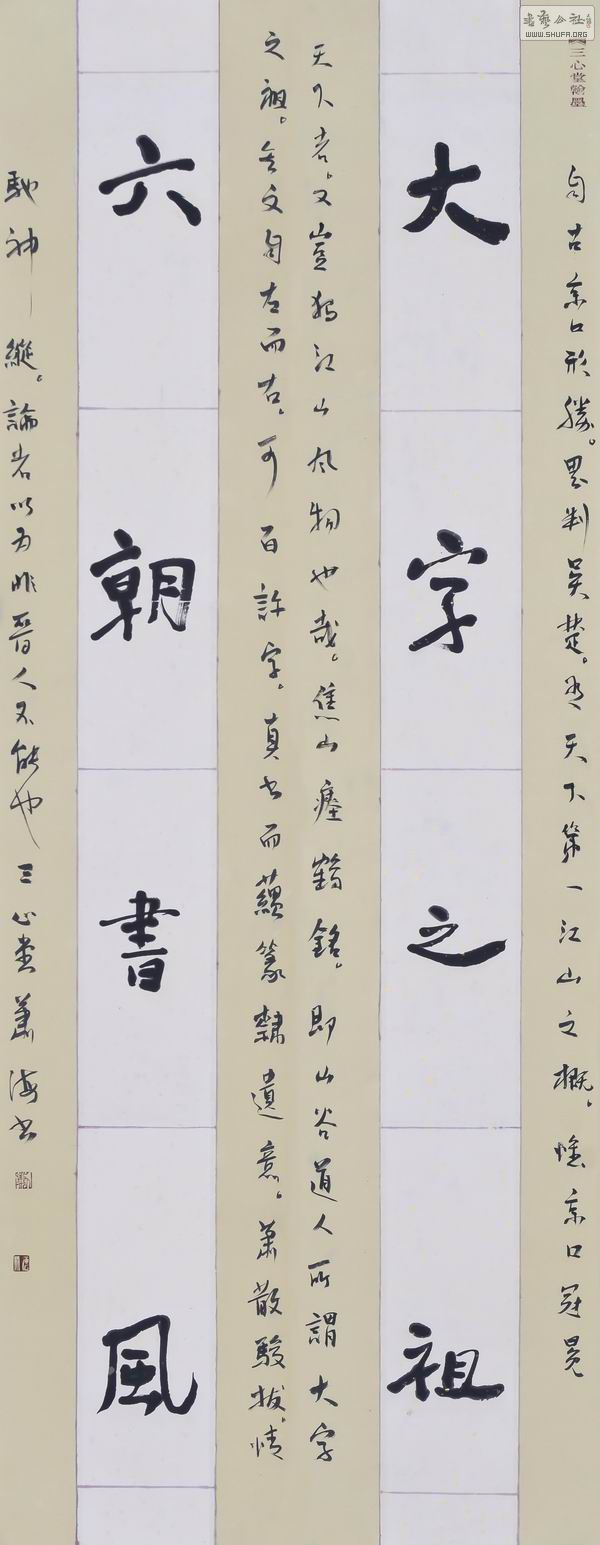 書藝公社
WWW.SHUFA.ORG
三心堂翰墨
自古京口形勝。畧判吳楚。有天下第一江山之概。惟京口冠冕
大字之祖
天下者。又豈獨江山风物也哉。焦山瘞鶴銘。即山谷道人所謂大字
之祖。其文自左而右。可百許字。真书而蘊篆隸遺意。蕭散駿拔。情
六朝書風
馳神縱。論者以为非晉人不能也 三心堂蕭海书